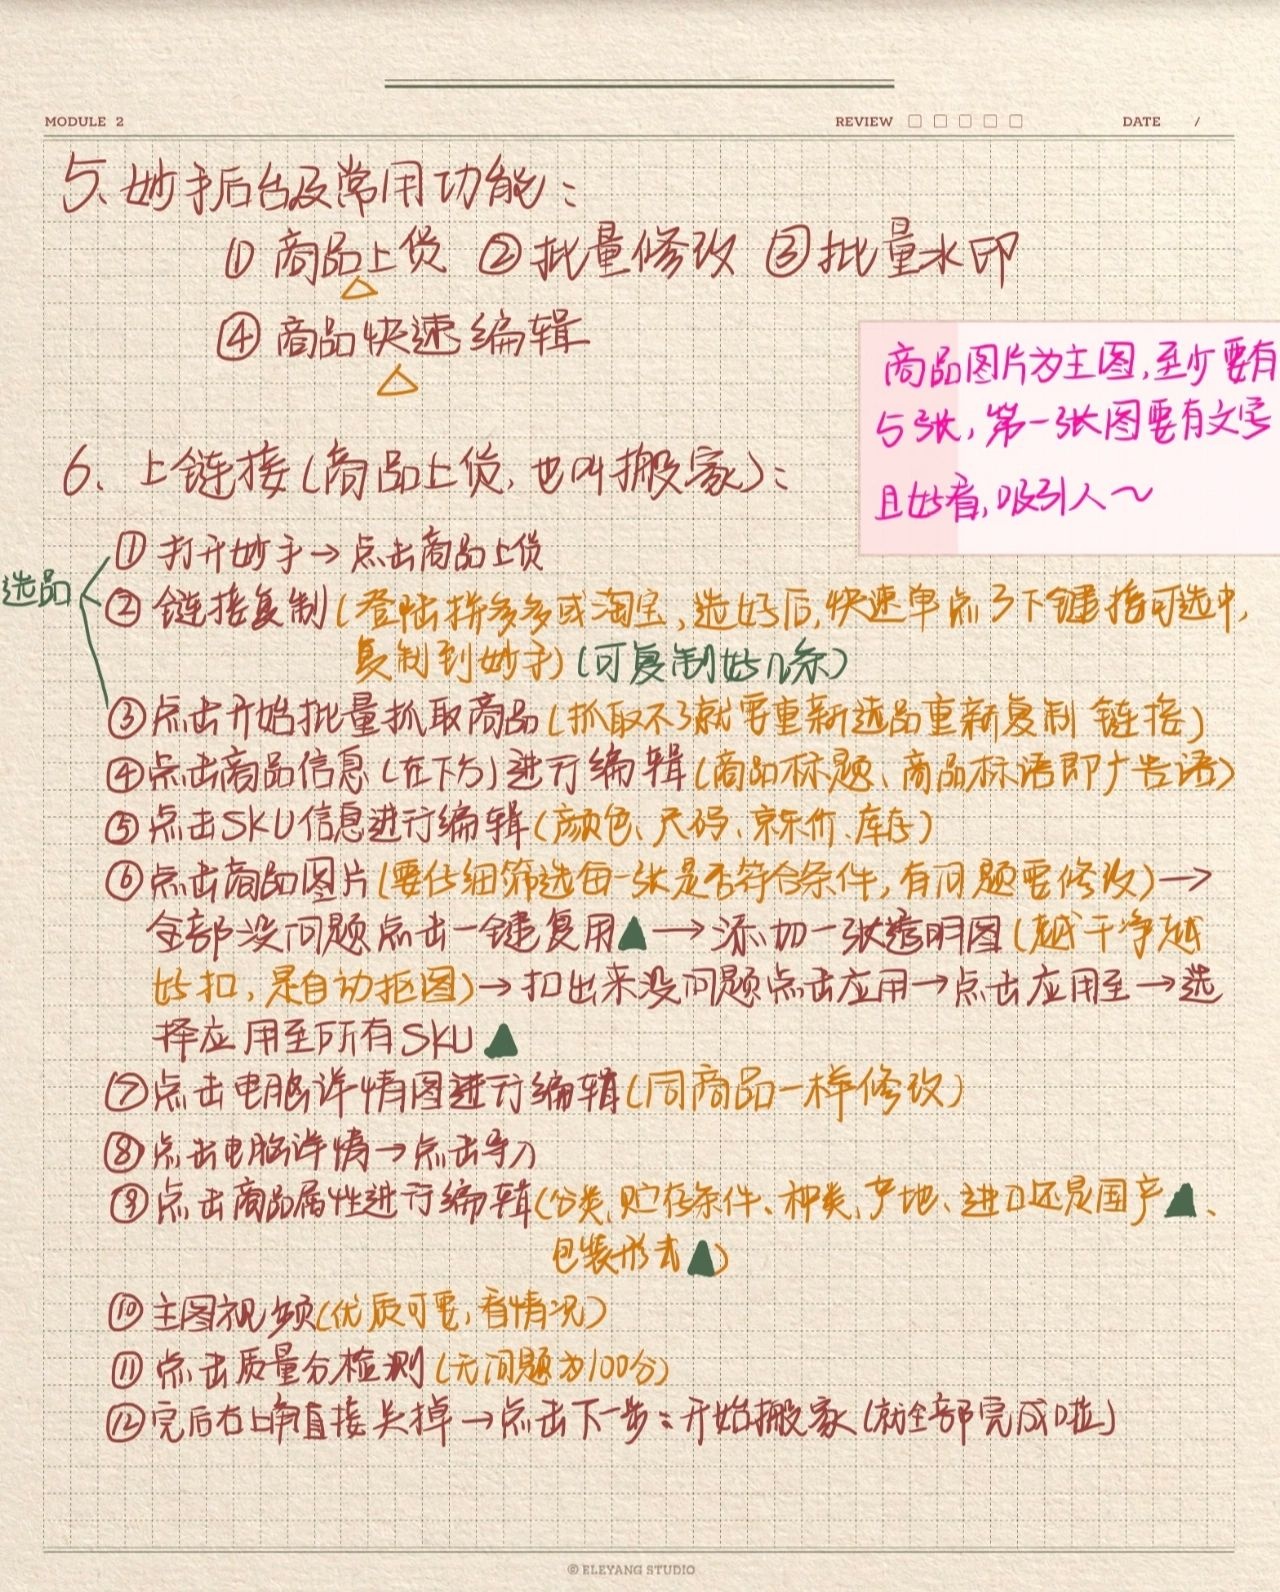 MODULE 2
REVIEW
DATE /
5、妙手后台及常用功能：
① 商品上货 ② 批量修改 ③ 批量水印
④ 商品快速编辑
商品图片为主图,至少要有
5张,第一张图要有文字
且好看,吸引人~
6、上链接(商品上货,也叫搬家)：
选品
①打开妙手→点击商品上货
②链接复制(登陆拼多多或淘宝,选好后,快速单点3下键接可选中,
复制到妙手)(可复制好几条)
③点击开始批量抓取商品(抓取不了就要重新选品重新复制链接)
④点击商品信息(在下方)进行编辑(商品标题、商品标语即广告语)
⑤点击SKU信息进行编辑(颜色、尺码、京东价、库存)
⑥点击商品图片(要仔细筛选每一张是否符合条件,有问题要修改)→
全部没问题点击一键复用▲→添加一张透明图(越干净越
好扣,是自动抠图)→扣出来没问题点击应用→点击应用至→选
择应用至所有SKU▲
⑦点击电脑详情图进行编辑(同商品一样修改)
⑧点击电脑详情→点击导入
⑨点击商品属性进行编辑(分类、贮存条件、种类、产地、进口还是国产▲、
包装形式▲)
⑩主图视频(优质可要,看情况)
⑪点击质量分检测(无问题为100分)
⑫完后右上角直接关掉→点击下一步：开始搬家(就全部完成啦)
© ELEYANG STUDIO